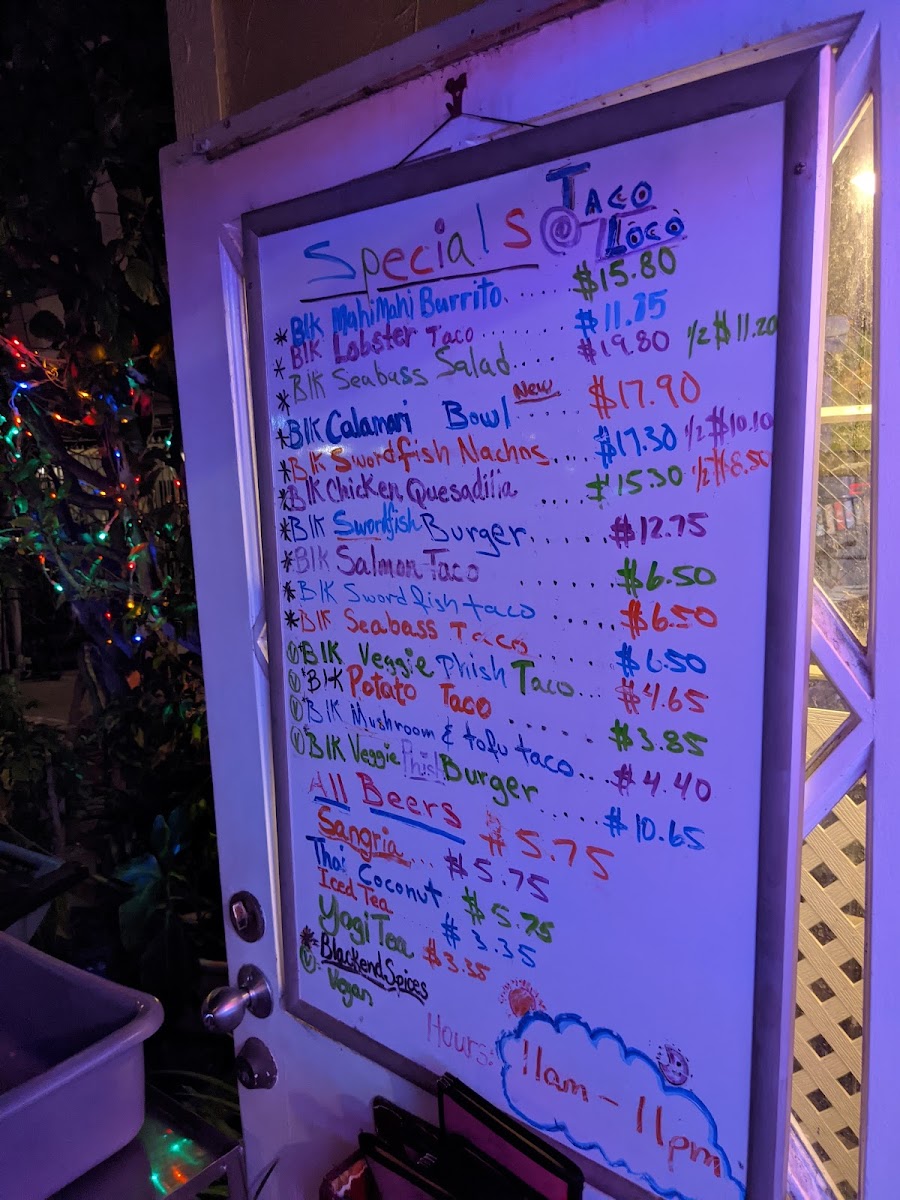 Specials @ Taco Loco
* Blk MahiMahi Burrito..... $15.80
* Blk Lobster Taco....... $11.25
* Blk Seabass Salad.... $19.80 1/2 $11.20
* Blk Calamari Bowl New .... $17.90
* Blk Swordfish Nachos.... $17.30 1/2 $10.10
* Blk Chicken Quesadilla .... $15.30 1/2 $8.50
* Blk Swordfish Burger..... $12.75
* Blk Salmon Taco ...... $6.50
* Blk Swordfish taco ..... $6.50
* Blk Seabass Taco ...... $6.50
Ⓥ* Blk Veggie Phish Taco... $4.65
Ⓥ* Blk Potato Taco ...... $3.85
Ⓥ* Blk Mushroom & tofu taco... $4.40
Ⓥ* Blk Veggie Phish Burger ..... $10.65
All Beers $5.75
Sangria... $5.75
Thai Coconut $5.75
Iced Tea $3.35
Yogi Tea $3.35
* Blackend Spices
Ⓥ: Vegan
Hours: 11am - 11pm